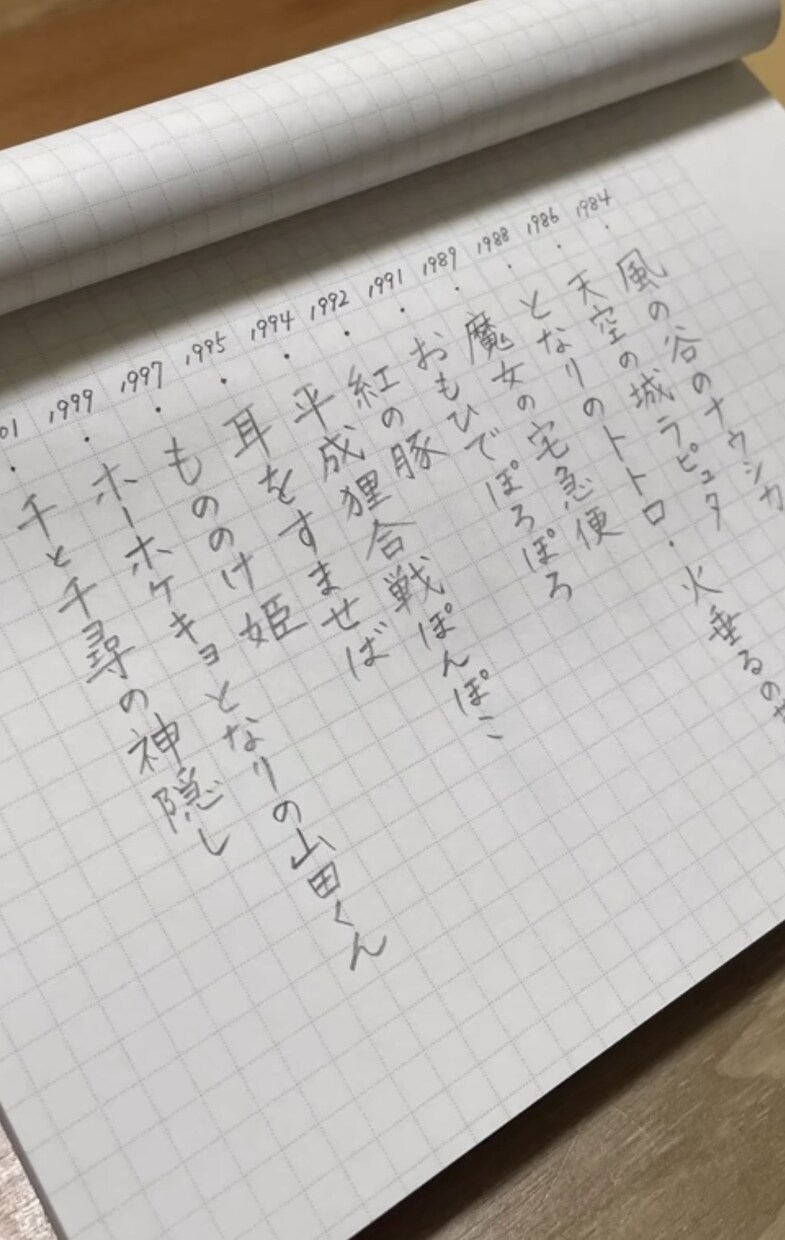 1984・風の谷のナウシカ
1986・天空の城ラピュタ
1988・となりのトトロ・火垂るの
1989・魔女の宅急便
1991・おもひでぽろぽろ
1992・紅の豚
1994・平成狸合戦ぽんぽこ
1995・耳をすませば
1997・もののけ姫
1999・ホーホケキョとなりの山田くん
01・千と千尋の神隠し